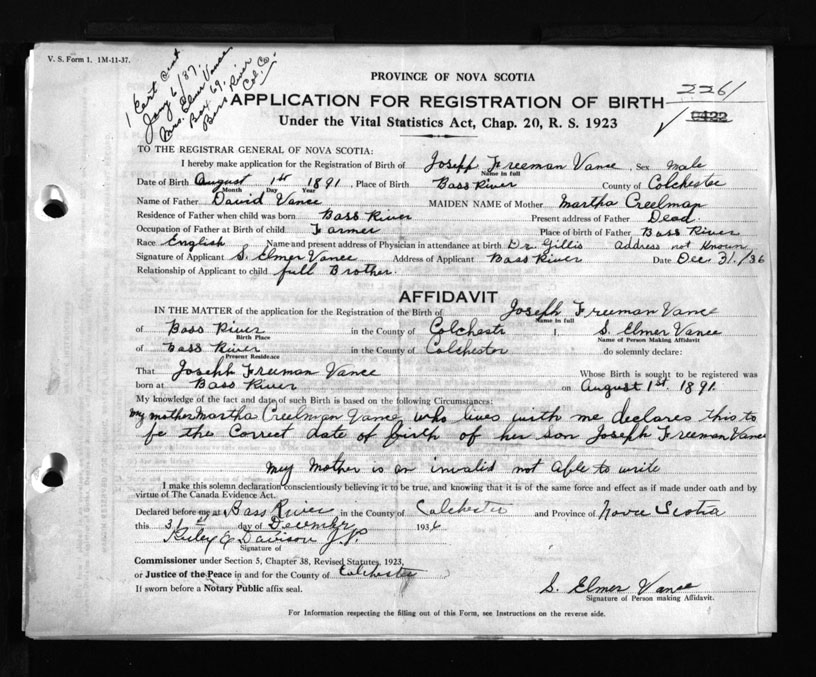 V. S. Form 1. 1M-11-37.
1 Cert Sent
Jany 6/37.
Mrs. Elmer Vance
Box 69.
Bass River
Col. Co.
PROVINCE OF NOVA SCOTIA
APPLICATION FOR REGISTRATION OF BIRTH
2261
Under the Vital Statistics Act, Chap. 20, R. S. 1923
TO THE REGISTRAR GENERAL OF NOVA SCOTIA:
I hereby make application for the Registration of Birth of Joseph Freeman Vance, Sex male
Name in full
Date of Birth August 1st 1891, Place of Birth Bass River County of Colchester
Month Day Year
Name of Father David Vance MAIDEN NAME of Mother Martha Creelman
Residence of Father when child was born Bass River Present address of Father Dead.
Occupation of Father at Birth of child Farmer Place of birth of Father Bass River
Race English Name and present address of Physician in attendance at birth Dr. Gillis address not known
Signature of Applicant S. Elmer Vance Address of Applicant Bass River Date Dec 31/36
Relationship of Applicant to child full Brother.
AFFIDAVIT
IN THE MATTER of the application for the Registration of the Birth of Joseph Freeman Vance
Name in full
of Bass River in the County of Colchestr I, S. Elmer Vance
Birth Place Name of Person Making Affidavit
of Bass River in the County of Colchester do solemnly declare:
Present Residence
That Joseph Freeman Vance Whose Birth is sought to be registered was
born at Bass River on August 1st. 1891
My knowledge of the fact and date of such Birth is based on the following Circumstances:
my mother Martha Creelman Vance who lives with me declares this to
be the correct date of birth of her son Joseph Freeman Vance
my mother is an invalid not able to write
I make this solemn declaration conscientiously believing it to be true, and knowing that it is of the same force and effect as if made under oath and by
virtue of The Canada Evidence Act.
Declared before me at Bass River in the County of Colchester and Province of Nova Scotia
this 31st day of December 1936
Davison J.P.
Signature of
Commissioner under Section 5, Chapter 38, Revised Statutes, 1923,
or Justice of the Peace in and for the County of Colchester
If sworn before a Notary Public affix seal.
S. Elmer Vance
Signature of Person making Affidavit.
For Information respecting the filling out of this Form, see Instructions on the reverse side.